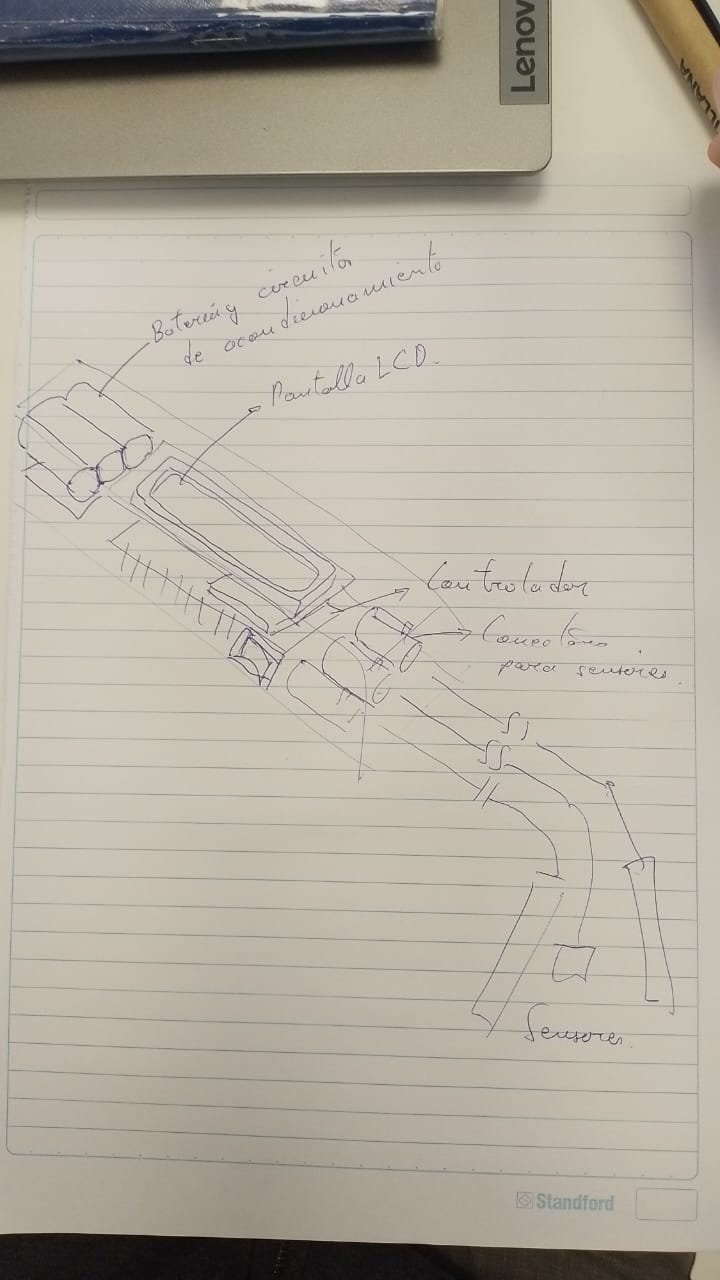 Lenov
ILLANA
Batería y circuito
de acondicionamiento
Pantalla LCD.
Controlador
Conectores
para sensores.
Sensores.
Standford